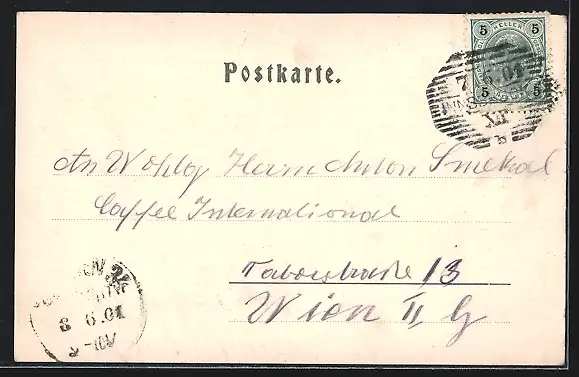 5 HELLER 5
5 5
Postkarte.
7 6.01
INNS
XII
b
An Wohlg Herrn Anton Smekal
Caffee International
Taborstraße 13
Wien II, G
WIEN 2/1
8 6.01